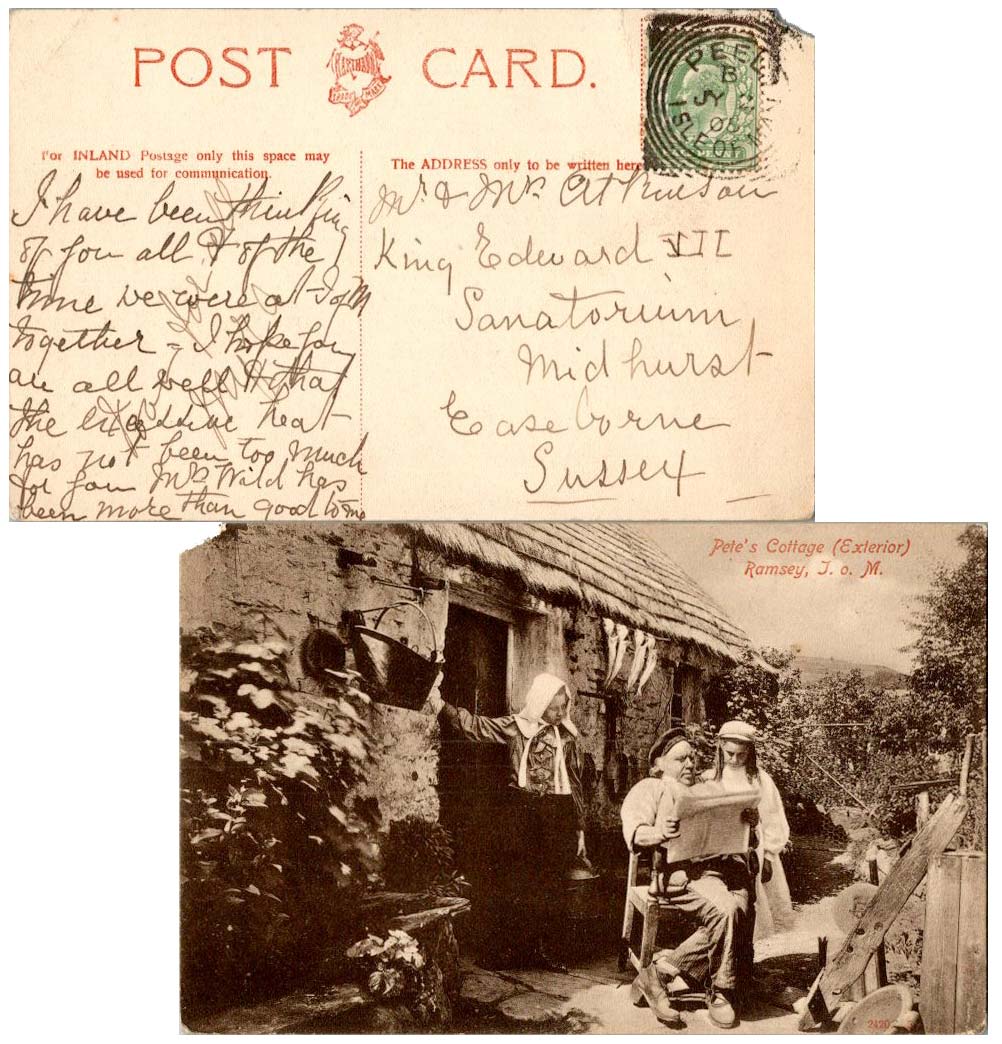 POST CARD.
HARTMANN
TRADE MARK
PEEL
B
JY
08
ISLE OF
For INLAND Postage only this space may
be used for communication.
The ADDRESS only to be written here
I have been thinking
of you all & of the
time we were at I of M
together - I hope you
are all well & that
the excessive heat
has not been too much
for you Mrs Wild has
been more than good to me
Mr & Mrs Atkinson
King Edward VII
Sanatorium
Midhurst
Easeborne
Sussex
Pete's Cottage (Exterior)
Ramsey, I. o. M.
2420